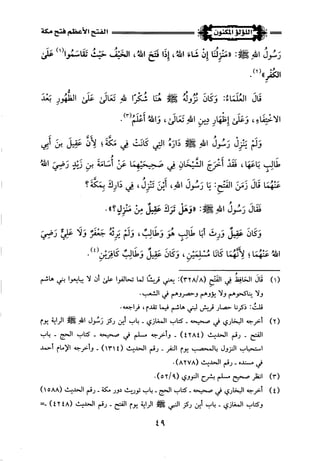 اللؤلؤ المكنون
الفتح الأعظم فتح مكة
رَسُولُ اللهِ ﷺ: «مَنْزِلُنَا إِنْ شَاءَ اللهُ، إِذَا فَتَحَ اللهُ، الخَيْفُ حَيْثُ تَقَاسَمُوا(١) عَلَى
الكُفْرِ»(٢).
قَالَ العُلَمَاءُ: وَكَانَ نُزُولُهُ ﷺ هُنَا شُكْرًا للهِ تَعَالَى عَلَى الظُّهُورِ بَعْدَ
الاخْتِفَاءِ، وَعَلَى إِظْهَارِ دِينِ اللهِ تَعَالَى، وَاللهُ أَعْلَمُ(٣).
وَلَمْ يَنْزِلْ رَسُولُ اللهِ ﷺ دَارَهُ التِي كَانَتْ فِي مَكَّةَ؛ لِأَنَّ عَقِيلَ بنَ أَبِي
طَالِبٍ بَاعَهَا، فَقَدْ أَخْرَجَ الشَّيْخَانِ فِي صَحِيحَيْهِمَا عَنْ أُسَامَةَ بنِ زَيْدٍ رَضِيَ اللهُ
عَنْهُمَا قَالَ زَمَنَ الفَتْحِ: يَا رَسُولَ اللهِ، أَيْنَ تَنْزِلُ، فِي دَارِكَ بِمَكَّةَ؟
فَقَالَ رَسُولُ اللهِ ﷺ: «وَهَلْ تَرَكَ عَقِيلٌ مِنْ مَنْزِلٍ؟».
وَكَانَ عَقِيلٌ وَرِثَ أَبَا طَالِبٍ هُوَ وَطَالِبٌ، وَلَمْ يَرِثْهُ جَعْفَرٌ وَلَا عَلِيٌّ رَضِيَ
اللهُ عَنْهُمَا؛ لِأَنَّهُمَا كَانَا مُسْلِمَيْنِ، وَكَانَ عَقِيلٌ وَطَالِبٌ كَافِرَيْنِ(٤).
(١) قَالَ الحَافِظُ فِي الفَتْحِ (٣٢٨/٨): يعني قريشًا لما تحالفوا على أن لا يبايعوا بني هاشم
ولا يناكحوهم ولا يؤوهم وحصروهم في الشعب.
قلتُ: ذكرنا حصار قريش لبني هاشم فيما تقدم، فراجعه.
(٢) أخرجه البخاري في صحيحه ـ كتاب المغازي ـ باب أين ركز رَسُول اللهِ ﷺ الراية يوم
الفتح ـ رقم الحديث (٤٢٨٤) ـ وأخرجه مسلم في صحيحه ـ كتاب الحج ـ باب
استحباب النزول بالمحصب يوم النفر ـ رقم الحديث (١٣١٤) ـ وأخرجه الإمام أحمد
في مسنده ـ رقم الحديث (٨٢٧٨).
(٣) انظر صحيح مسلم بشرح النووي (٥٢/٩).
(٤) أخرجه البخاري في صحيحه ـ كتاب الحج ـ باب توريث دور مكة ـ رقم الحديث (١٥٨٨)
وكتاب المغازي ـ باب أين ركز النبي ﷺ الراية يوم الفتح ـ رقم الحديث (٤٢٤٨) ـ=
٤٩